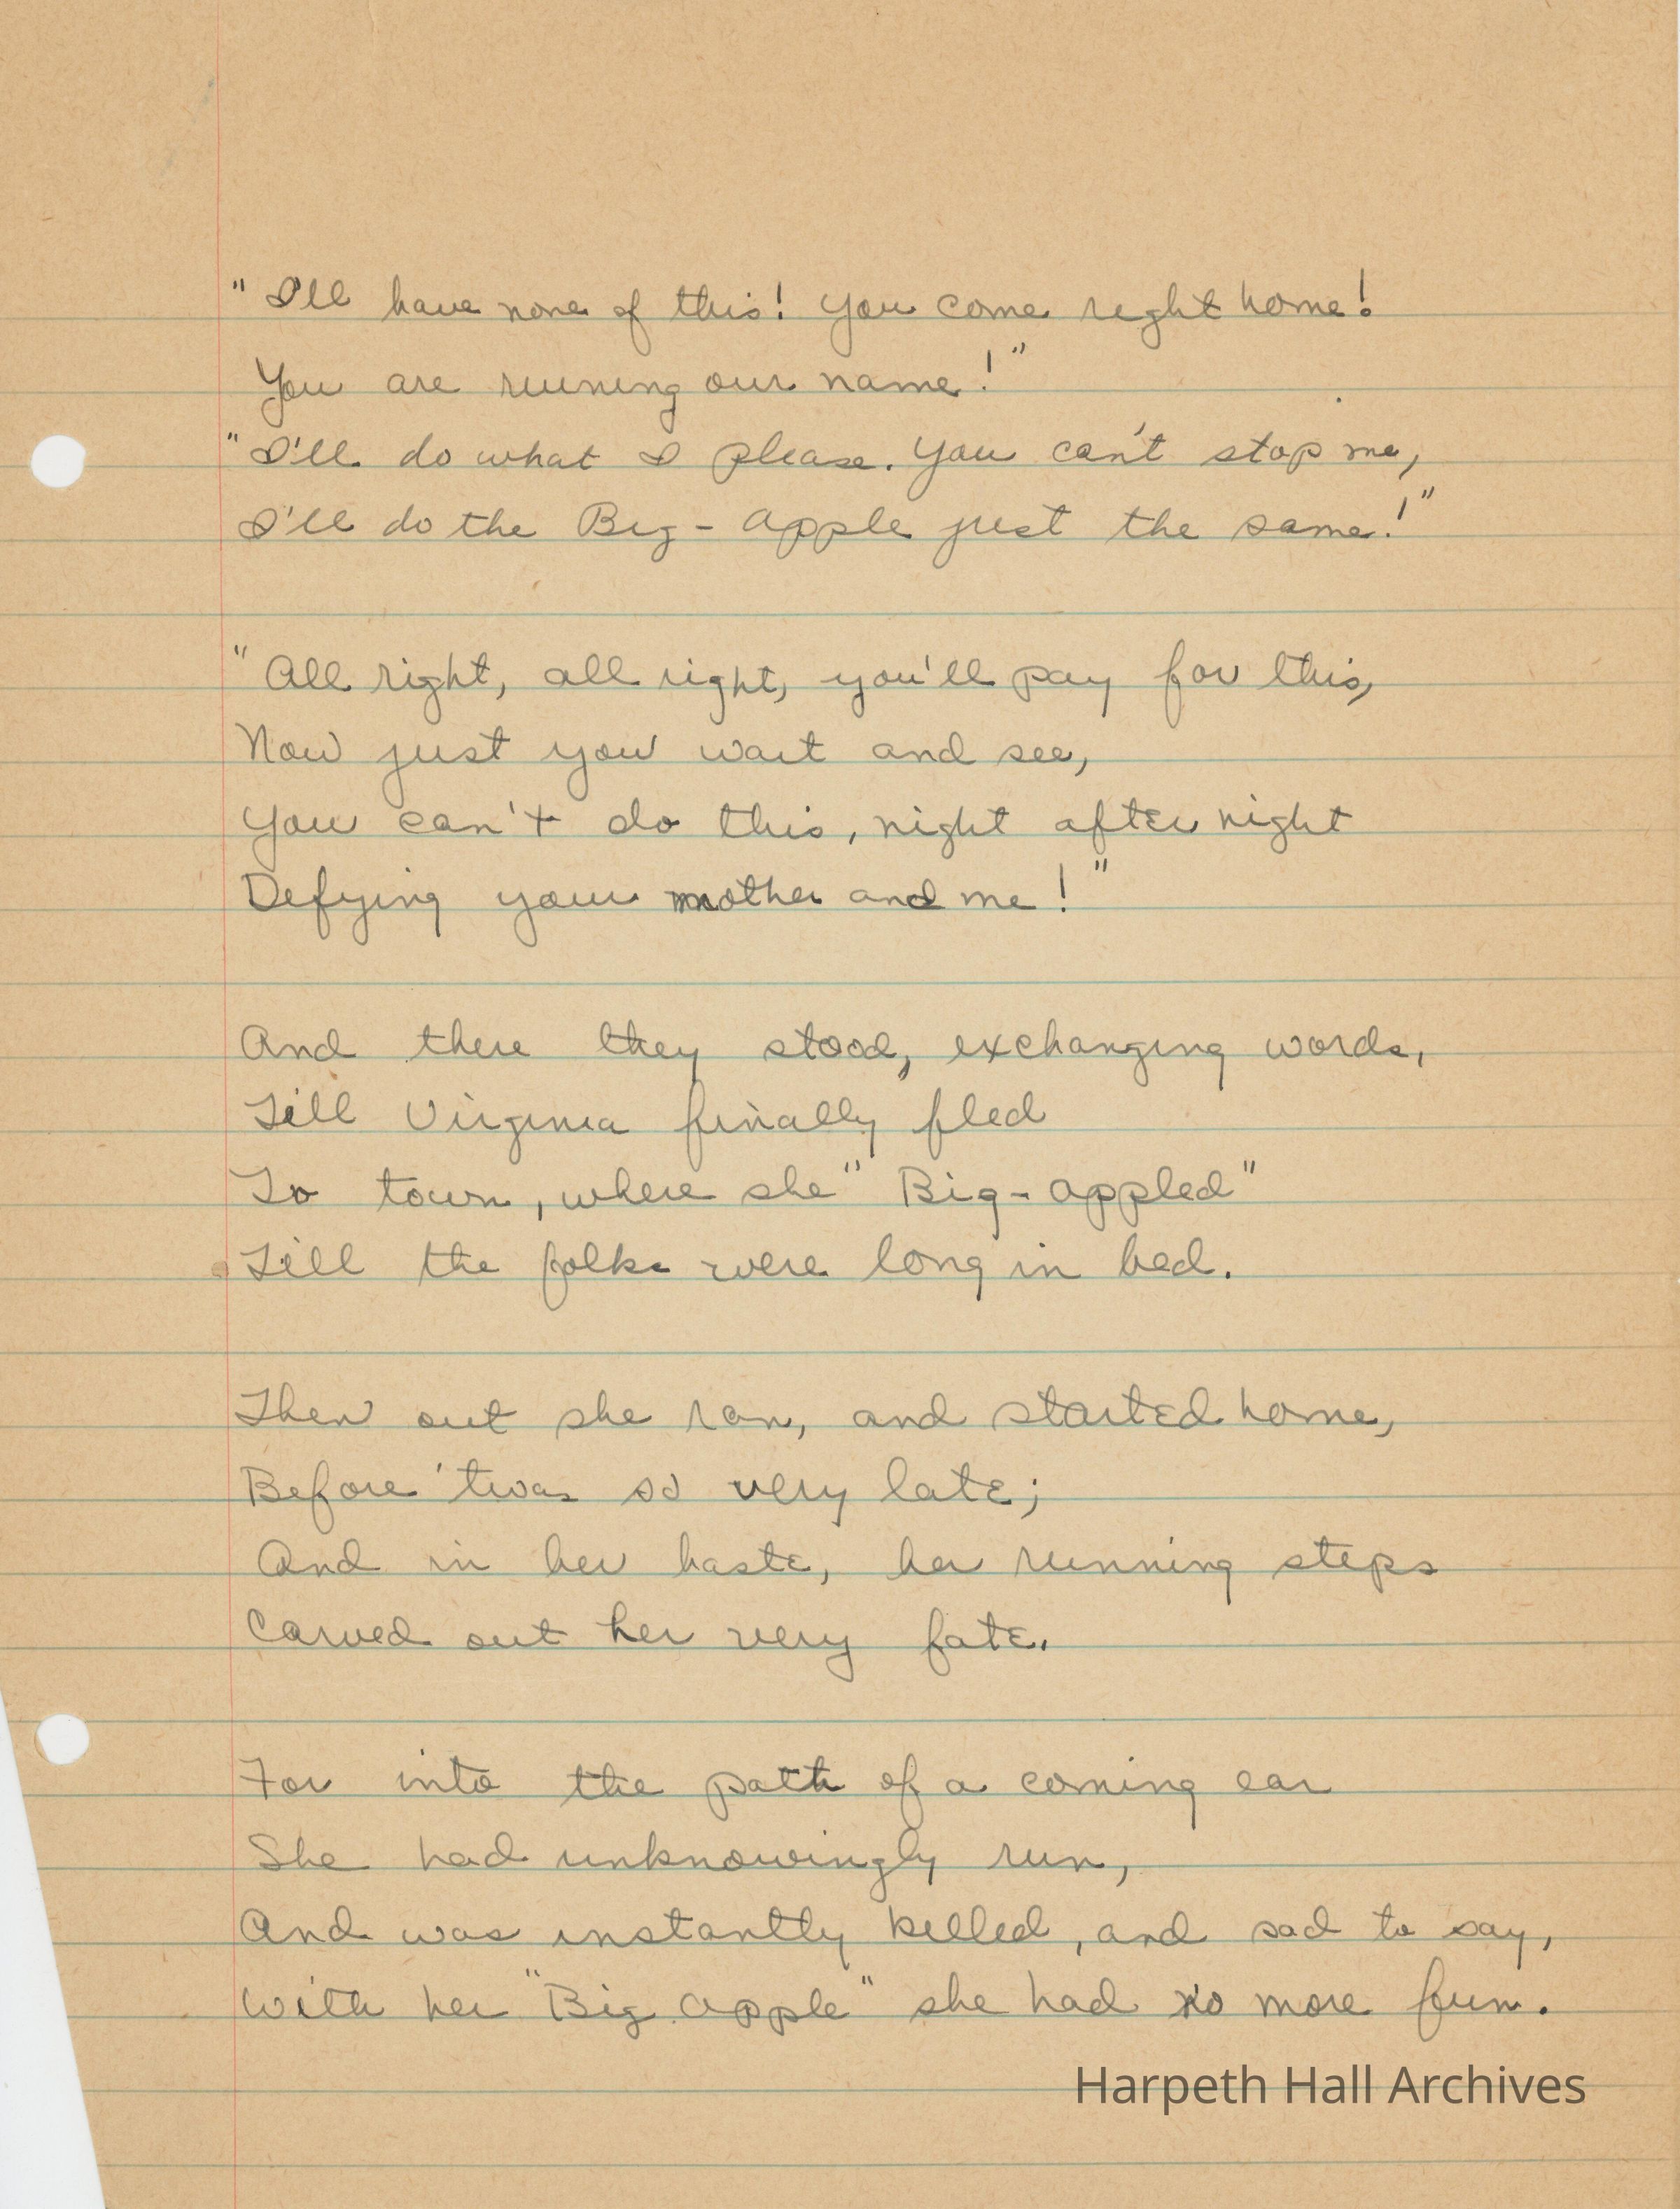 "I'll have none of this! You come right home!
You are ruining our name!"
"I'll do what I please. You can't stop me,
I'll do the Big-apple just the same!"
"All right, all right, you'll pay for this,
Now just you wait and see,
You can't do this, night after night
Defying your mother and me!"
And there they stood, exchanging words,
Till Virginia finally fled
To town, where she "Big-appled"
Till the folks were long in bed.
Then out she ran, and started home,
Before 'twas so very late;
And in her haste, her running steps
Carved out her very fate.
For into the path of a coming car
She had unknowingly run,
And was instantly killed, and sad to say,
With her "Big apple" she had no more fun.
Harpeth Hall Archives